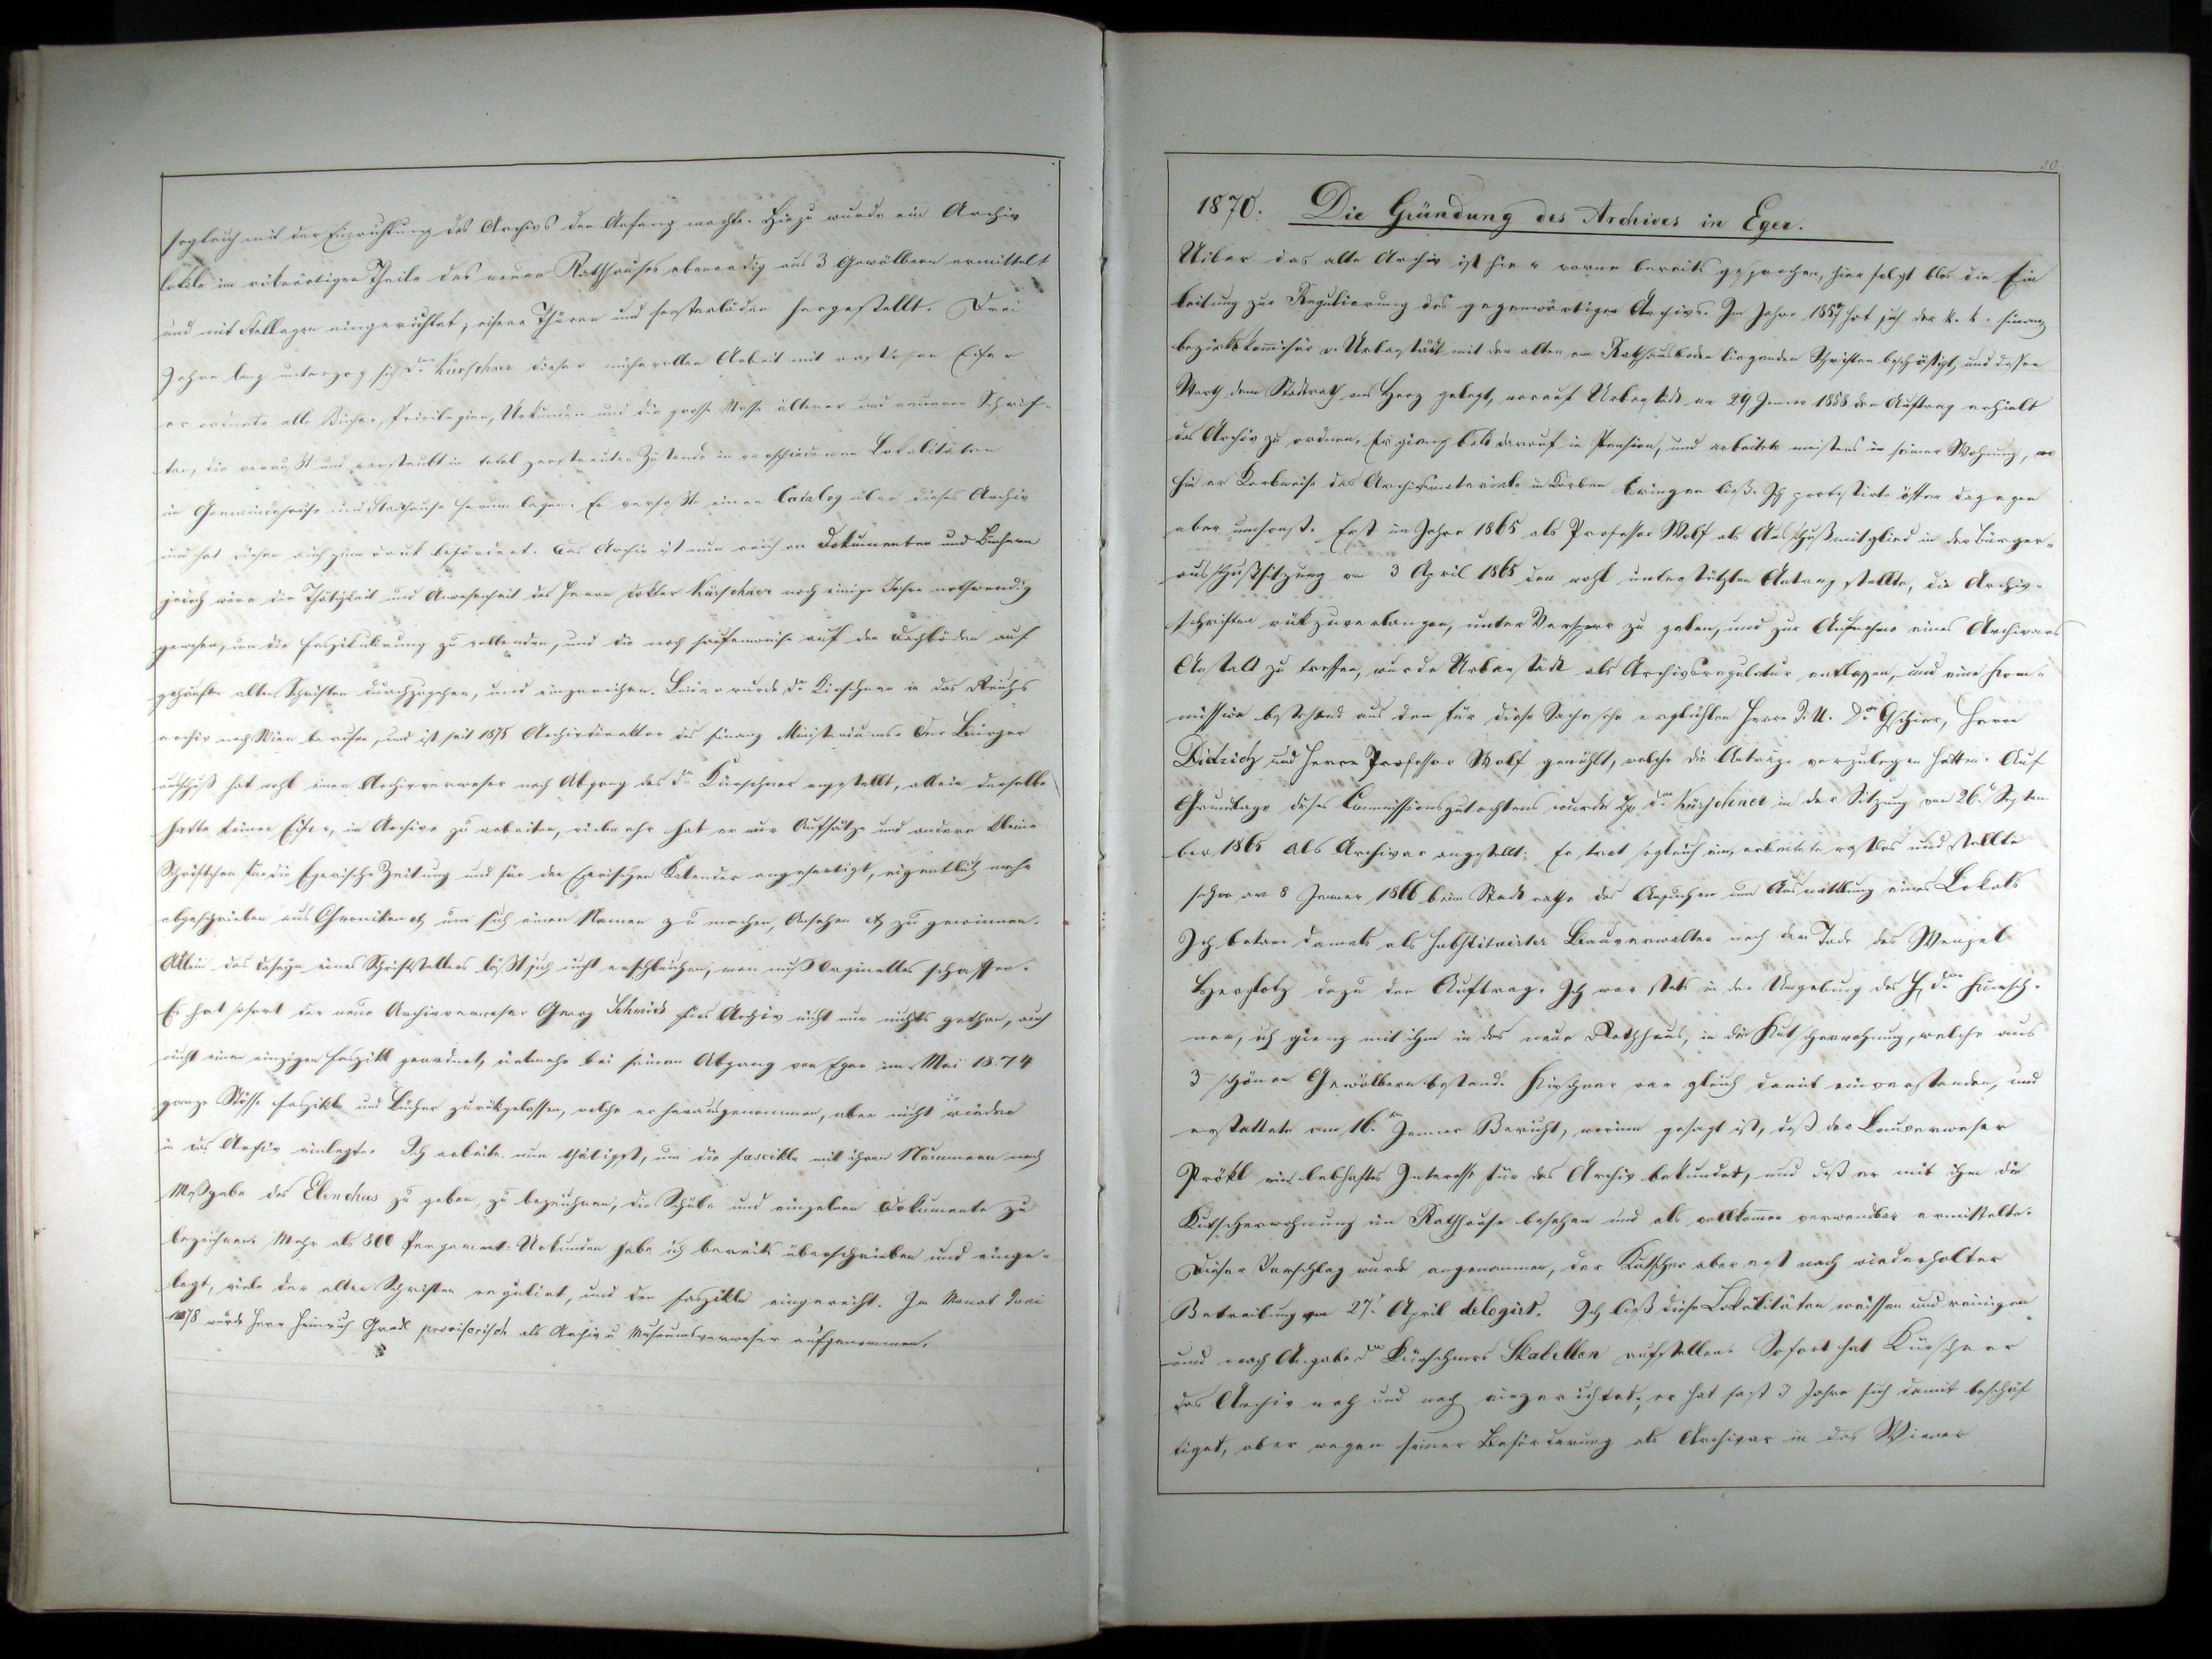 sogleich mit der Einrichtung des Archivs den Anfang machte. Hiezu wurde ein Archiv
lokale im rükwärtigen Theile des neuen Rathhauses ebenerdig aus 3 Gewölbern ermittelt
und mit Stellagen eingerichtet, eiserne Thüren und Fensterläden hergestellt. Drei
Jahre lang unterzog sich Dr Kürschner dieser mühevollen Arbeit mit rastlosen Eifer
er ordnete alle Bücher, Privilegien, Urkunden und die grosse Masse älterer und neuerer Schrif-
ten, die verrußt und verstaubt in total zerstreuten Zustande in verschiedenen Lokalitäten
im Gemeindehause und Stadthause herum lagen. Er verfaßte einen Catalog über dieses Archiv
und hat diesen auch zum Druk befördert. Das Archiv ist nun reich an Dokumenten und Büchern
jedoch wäre die Thätigkeit und Anwesenheit des Herrn Doktor Kürschner noch einige Jahre nothwendig
gewesen, um die Faszikulirung zu vollenden, und die noch haufenweise auf den Dachböden auf
gehäuften alten Schriften durchzugehen, und einzureihen. Leider wurde Dr Kürschner in das Reichs
archiv nach Wien berufen, und ist seit 1875 Archivdirektor des Finanz Ministeriums. Der Bürger
ausschuß hat wohl einen Archivverweser nach Abgang des Dr Kürschner angestellt, allein derselbe
hatte keinen Eifer, im Archive zu arbeiten, vielmehr hat er nur Aufsätze und andere kleine
Schriftchen für die Egerische Zeitung und für den Egerischen Kalender angefertigt, eigentlich mehr
abgeschrieben aus Chroniken etc um sich einen Namen zu machen, Ansehen etc zu gewinnen.
Allein das Ansehn eines Schriftstellers läßt sich nicht erschleichen, man muß Orginelles schaffen.
Es hat sofort der neue Archivverweser Georg Schmid fürs Archiv nicht nur nichts gethan, auch
nicht einen einzigen Faszikl geordnet, vielmehr bei seinem Abgang von Eger im Mai 1874
ganze Stösse Faszikln und Bücher zurükgelassen, welche er herausgenommen, aber nicht wieder
in das Archiv einlegte. Ich arbeite nun thätigst, um die Fascikln mit ihren Nummern nach
Maßgabe des Elenchus zu geben, zu bezeichnen, die Schübe und einzelnen Dokumente zu
bezeichnen. Mehr als 800 Pergament-Urkunden habe ich bereits überschrieben und einge-
legt, viele der alten Schriften regulirt, und den Faszikln eingereiht. Im Monat Juni
1878 wurde Herr Heinrich Gradl provisorisch als Archiv u Museumsverweser aufgenommen.
50
1870. Die Gründung des Archives in Eger.
Uiber das alte Archiv ist hier vorne bereits gesprochen, hier folgt blos die Ein
leitung zur Regulierung des gegenwärtigen Archivs. Im Jahre 1857 hat sich der k. k. Finanz
bezirkskommisär v. Urbanstädt mit den alten am Rathhausboden liegenden Schriften beschäftigt, und dessen
Werth dem Stadtrath ans Herz gelegt, worauf Urbanstädt am 29 Jenner 1858 den Auftrag erhielt
das Archiv zu ordnen. Er gieng bald darauf in Pension, und arbeitete meistens in seiner Wohnung, wo
hin er Korbweise das Archivsmateriale in Körben bringen ließ. Ich protestirte öfter dagegen
aber umsonst. Erst im Jahre 1865 als Professor Wolf als Ausschußmitglied in der Bürger-
ausschußsitzung vom 3 April 1865 den wohl unterstützten Antrag stellte, die Archiv-
schriften rükzuverlangen, unter Versperr zu geben, und zur Aufnahme eines Archivars
Anstalt zu treffen, wurde Urbanstädt als Archivsregulatur entlassen, und eine Kom-
mission bestehend aus den für diese Sache sehr erglühten Herrn J. U. Dr Gschier, Herrn
Dietrich und Herrn Professor Wolf gewählt, welche die Anträge vorzulegen hatten. Auf
Grundlage dieses Commissionsgutachtens wurde H. Dr Kürschner in der Sitzung vom 26. Septem
ber 1865 als Archivar angestellt. Er trat sogleich ein, arbeitete rastlos und stellte
schon am 8 Jenner 1866 beim Stadtrathe das Ansuchen um Ausmittlung eines Lokals
Ich bekam damals als substituirter Bauverwalter nach dem Tode des Wenzel
Herglotz dazu den Auftrag. Ich war stets in der Umgebung des H. Dr Kürsch-
ner, ich gieng mit ihm in das neue Rathhaus, in die Kutscherwohnung, welche aus
3 schönen Gewölbern bestand. Kürschner war gleich damit einverstanden, und
erstattete am 16. Jenner Bericht, worinn gesagt ist, daß der Bauverweser
Prökl ein lebhaftes Interesse für das Archiv bekundet, und daß er mit ihm die
Kutscherwohnung im Rathhause besehen und als vollkommen verwendbar ermittelte.
Dieser Vorschlag wurde angenommen, der Kutscher aber erst nach wiederholter
Betreibung am 27. April delogirt. Ich ließ diese Lokalitäten weissen und reinigen
und nach Angabe Dr Kürschners Skabellen aufstellen. Sofort hat Kürschner
das Archiv nach und nach eingerichtet, er hat fast 3 Jahre sich damit beschäf
tiget, aber wegen seiner Beförderung als Archivar in das Wiener